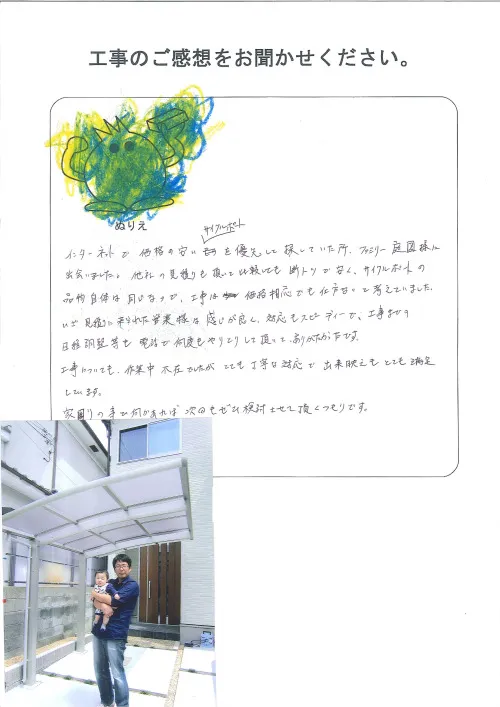 工事のご感想をお聞かせください。
ぬりえ
サイクルポート
インターネットで価格の安いを優先して探していた所、ファミリー庭園様に
出会いました。他社の見積りも頂いて比較しても断トツで安く、サイクルポートの
品物自体は同じなので、工事は価格相応でも仕方ないと考えていました。
いざ見積りに来られた営業様は感じが良く、対応もスピーディーで、工事までの
日程調整等も電話で何度もやりとりして頂いて、ありがたかったです。
工事についても、作業中不在でしたがとても丁寧な対応で出来映えもとても満足
しています。
家周りの事で何かあれば次回もぜひ検討させて頂くつもりです。